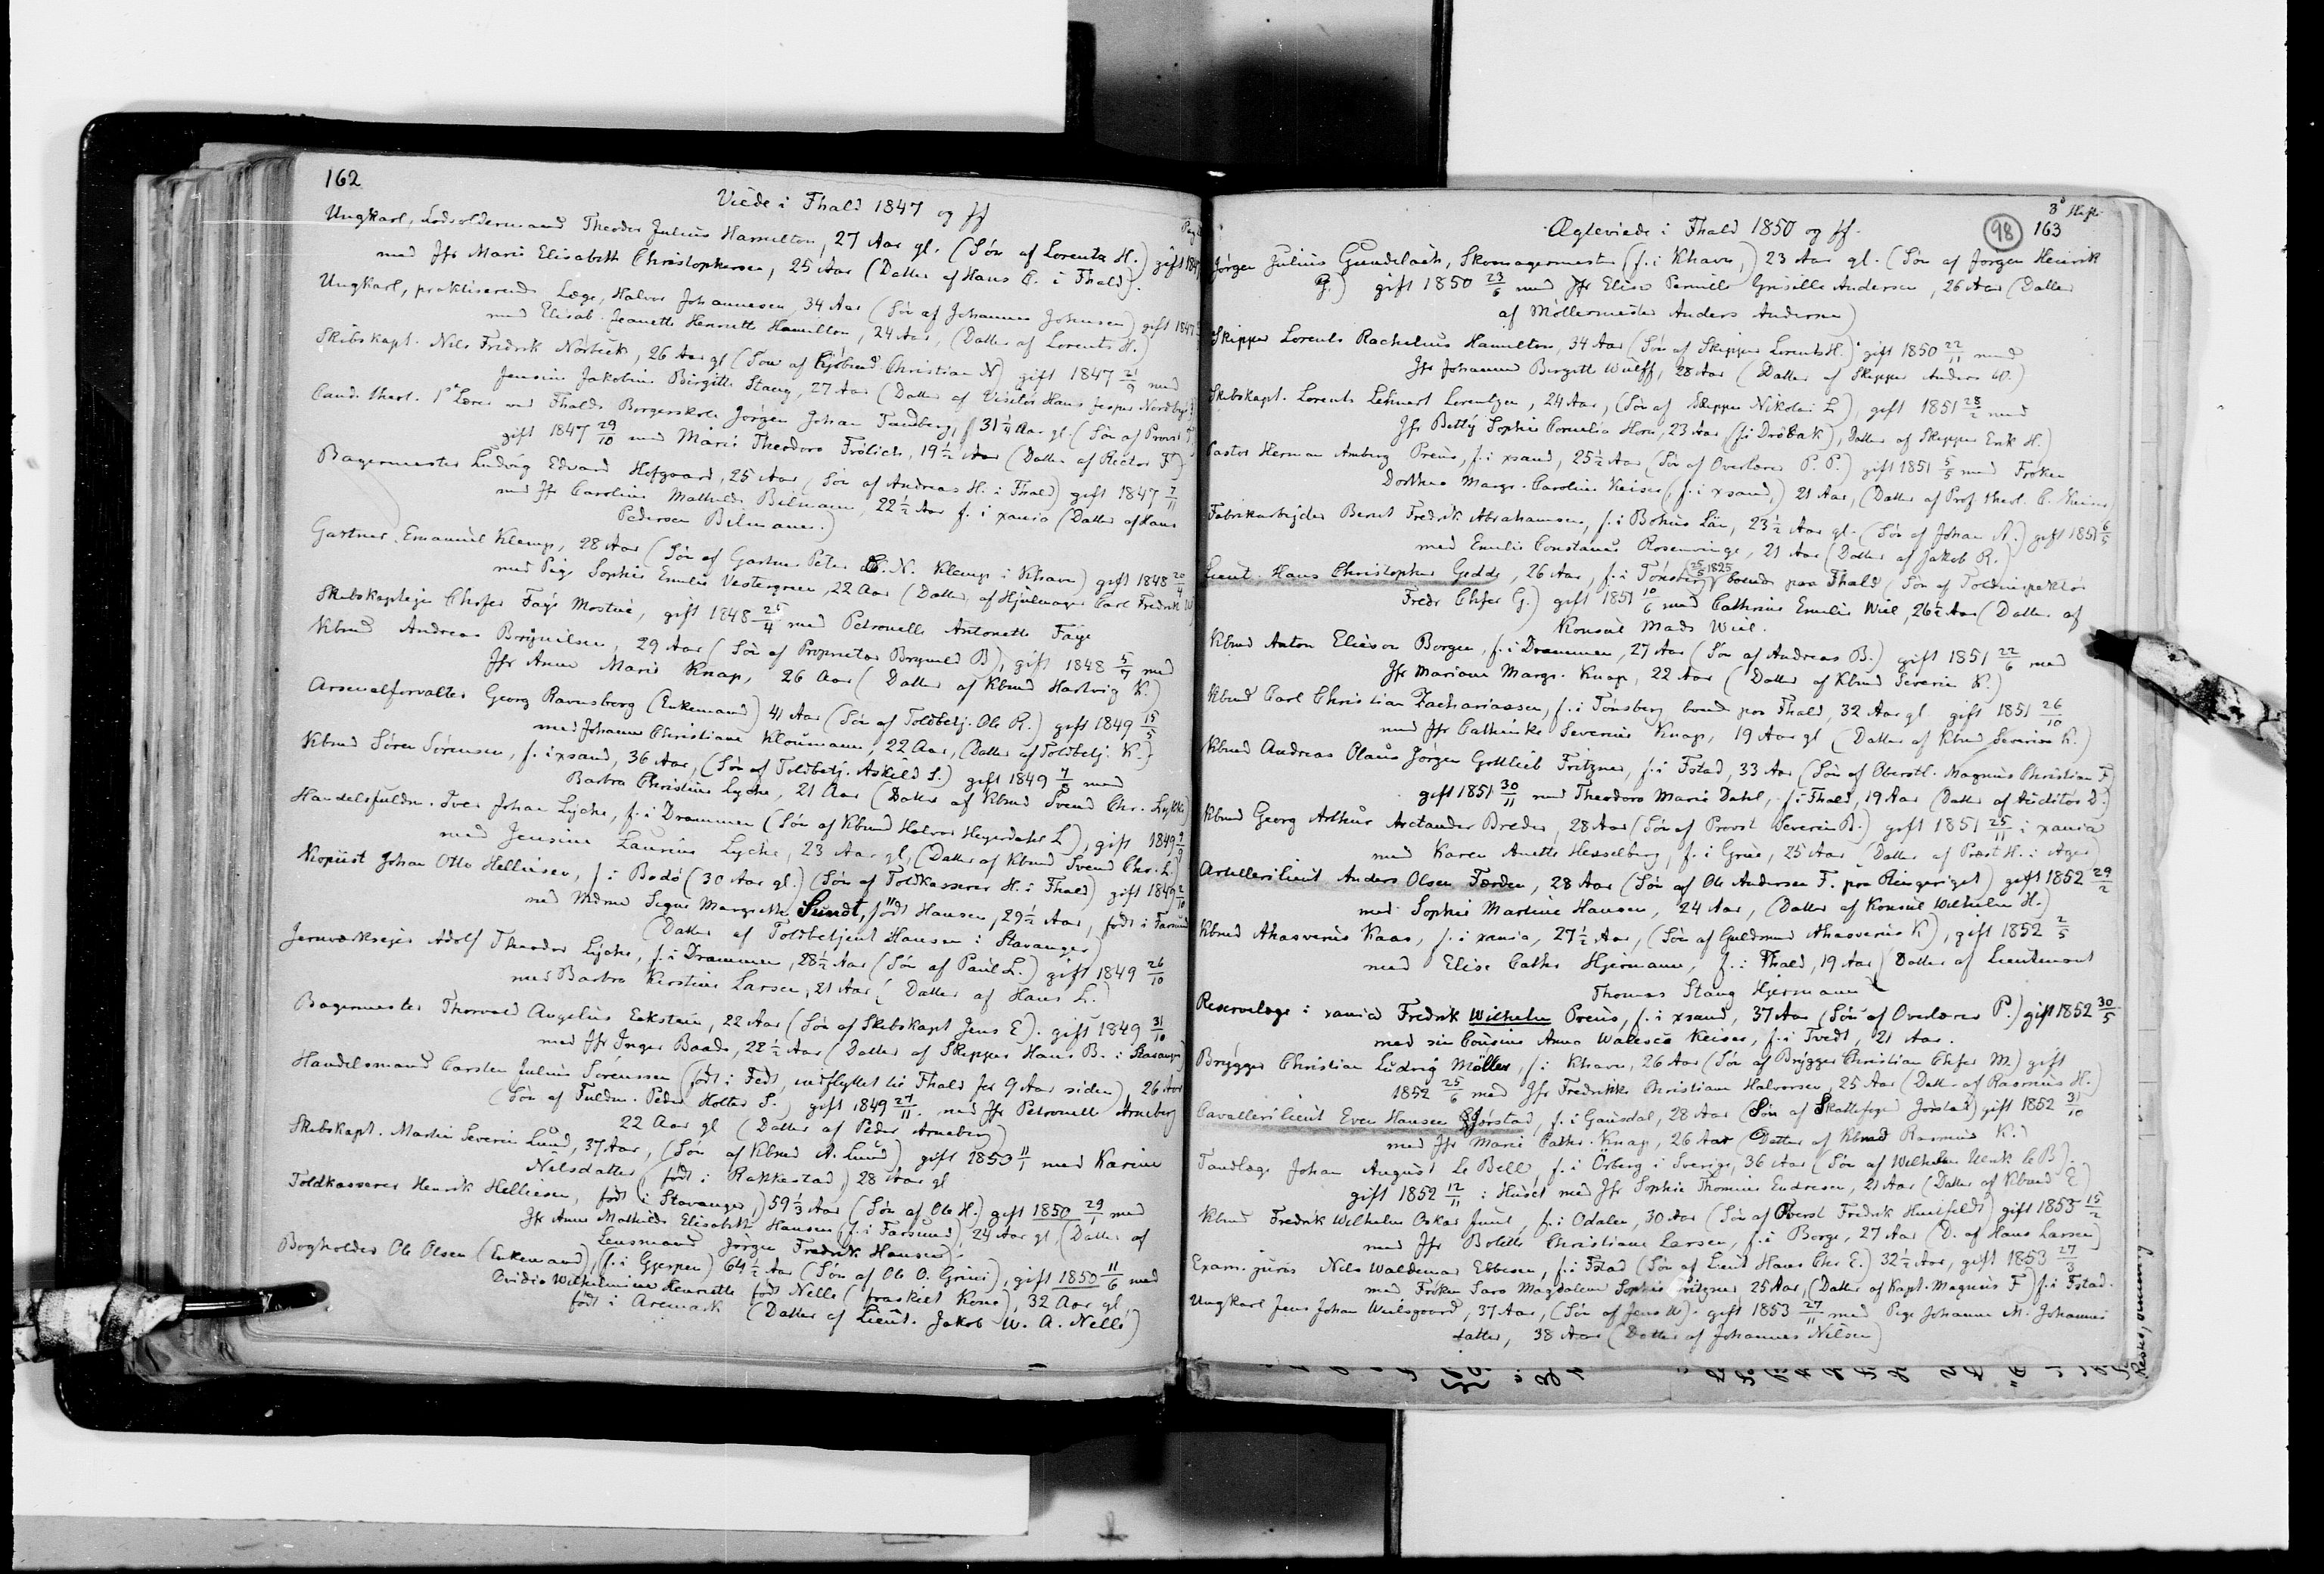 162
Viede i Fhald 1847 og ff
Ungkarl, Lodsoldermand Theodor Julius Hamilton, 27 Aar gl. (Sön af Lorentz H.) gift 1847
med Jfr Marie Elisabeth Christophersen, 25 Aar (Datter af Hans C. i Fhald).
Ungkarl, praktiserende Læge, Halvor Johannesen, 34 Aar (Sön af Johannes Johnsen) gift 1847
med Elisab. Jeanette Henriette Hamilton, 24 Aar, (Datter af Lorents H.)
Skibskapt. Nils Fredrik Nörbeck, 26 Aar gl (Sön af Kjöbmd Christian N) gift 1847 21/9 med
Jensine Jakobine Birgitte Stang, 27 Aar (Datter af Visitör Hans Jesper
Cand. theol. 1ste Lærer ved Fhalds Borgerskole Jörgen Johan Tandberg, 31 1/4 Aar gl (Sön af Provst T.)
gift 1847 29/10 med Marie Theodora Frölich, 19 1/2 Aar (Datter af Rector F)
Bagermester Ludvig Edvard Hofgaard, 25 Aar (Sön af Andreas H. i Fhald) gift 1847 7/11
med Jfr Caroline Mathilde Bilmann, 22 1/2 Aar f. i xania (Datter af Hans
Pedersen Bilmann.)
Gartner Emanuel Klemp, 28 Aar (Sön af Gartner Peter C. N. Klemp i Khavn) gift 1848 20/4
med Pige Sophie Emilie Vestergren, 22 Aar (Datter af Hjulmager Carl Fredrik W)
Skibskapteijn Chrster Faye Mostue, gift 1848 25/4 med Petronelle Antonette Faye
Kbmd Andreas Brynilsen, 29 Aar (Sön af Proprietær Brynild B), gift 1848 5/7 med
Jfr Anne Marie Knap, 26 Aar (Datter af Kbmd Hartvig K.)
Arsenalforvalter Georg Ravnsborg (Enkemand) 41 Aar (Sön af Toldbetj. Ole R.) gift 1849 15/5
med Johanne Christiane Kloumann, 22 Aar, (Datter af Toldbetj. K.)
Kbmd Sören Sörensen, f. i xsand, 36 Aar, (Sön af Toldbetj. Askild S.) gift 1849 7/8 med
Barbra Christine Lyche, 21 Aar (Datter af Kbmd Svend Chr. Lykke)
Handelsfuldm. Iver Johan Lyche, f. i Drammen (Sön af Kbmd Halvor Heyerdahl L), gift 1849
med Jensine Laurine Lyche, 23 Aar gl, (Datter af Kbmd Svend Chr. L.)
Kopiist Johan Otto Helliesen, f. i Bodö (30 Aar gl.) (Sön af Toldkasserer H. i Fhald) gift 1849 2/10
med Mdme Signe Margrethe Sundt, födt Hansen, 29 1/2 Aar, födt i Farsund
(Datter af Toldbetjent Hansen i Stavanger)
Jernværkseier Adolf Theodor Lyche, f. i Drammen, 28 1/2 Aar (Sön af Paul L.) gift 1849 26/10
med Barbra Kirstine Larsen, 21 Aar (Datter af Hans L.)
Bagermester Thorvald Angelius Eckstein, 22 Aar (Sön af Skibskapt Jens E). gift 1849 31/10
med Jfr Inger Baade, 22 1/2 Aar (Datter af Skipper Hans B. i Stavanger)
Handelsmand Carsten Julius Sörensen (födt i Fedt, indflyttet til Fhald for 9 Aar siden), 26 Aar
(Sön af Fuldm. Peder Holter S.) gift 1849 27/11. med Jfr Petronelle Arneberg
22 Aar gl (Datter af Peder Arneberg)
Skibskapt. Martin Severin Lund, 37 Aar, (Sön af Kbmd A. Lund) gift 1850 11/1 med Karine
Nilsdatter (födt i Rakkestad) 28 Aar gl
Toldkasserer Henrik Helliesen, födt i Stavanger, 59 1/3 Aar (Sön af Ole H.) gift 1850 29/1 med
Jfr Anne Mathilde Elisabeth Hansen, (f. i Farsund), 24 Aar gl (Datter af
Lensmand Jörgen Fredrik Hansen).
Bogholder Ole Olsen (Enkemand), (f. i Gjerpen) 64 1/2 Aar (Sön af Ole O. Grini), gift 1850 11/6 med
Ovidia Wilhelmine Henriette födt Nelle (fraskilt Kone), 32 Aar gl,
födt i Aremark (Datter af Lieut. Jakob W. A. Nelle)
3die Hefte
98 163
Ægteviede i Fhald 1850 og ff.
Jörgen Julius Gundelach, Skomagermester (f. i Khavn,) 23 Aar gl. (Sön af Jörgen Henrik
G.) gift 1850 23/6 med Jfr Elise Pernille Grisille Andersen, 26 Aar (Datter
af Möllermester Anders Andersen)
Skipper Lorents Rachelius Hamilton, 34 Aar (Sön af Skipper Lorents H.) gift 1850 22/11 med
Jfr Johanne Birgitte Wulff, 28 Aar (Datter af Skipper Anders W.)
Skibskapt. Lorents Lehnert Lorentzen, 24 Aar, (Sön af Skipper Nikolai L), gift 1851 28/2 med
Jfr Betty Sophie Cornelia Horn, 23 Aar (f. i Dröbak), Datter af Skipper Erik H.)
Pastor Herman Amberg Preus, f. i xsand, 25 1/2 Aar (Sön af Overlærer P. P.) gift 1851 5/5 med Fröken
Dorthea Margr. Caroline Keiser, (f. i xsand,) 21 Aar, (Datter af Prof. theol. C. Keiser)
Fabrikarbejder Bernt Fredrik Abrahamsen, f. i Bohus Län, 23 1/2 Aar gl. (Sön af Johan A.) gift 1851 6/5
med Emilie Constance Rosenvinge, 21 Aar (Datter af Jakob R.)
Lieut. Hans Christopher Gedde, 26 Aar, f. i Tönsberg (25/5 1825) boende paa Fhald (Sön af Toldinspektör
Fredr Chfer G.) gift 1851 10/6 med Cathrine Emilie Wiel, 26 1/2 Aar (Datter af
Konsul Mads Wiel.
Kbmd Anton Elieson Borgen, f. i Drammen, 27 Aar (Sön af Andreas B.) gift 1851 22/6 med
Jfr Mariane Margr. Knap, 22 Aar (Datter af Kbmd Severin K.)
Kbmd Carl Christian Zachariassen, f. i Tönsberg boende paa Fhald, 32 Aar gl gift 1851 26/10
med Jfr Cathinka Severine Knap, 19 Aar gl (Datter af Kbmd Severin K.)
Kbmd Andreas Olaus Jörgen Gottlieb Fritzner, f. i Fstad, 33 Aar (Sön af Oberstl. Magnus Christian F)
gift 1851 30/11 med Theodora Marie Dahl, f. i Fhald, 19 Aar (Datter af Auditör D.)
Kbmd Georg Arthur Arctander Breder, 28 Aar (Sön af Provst Severin B.) gift 1851 25/11 i xania
med Karen Anette Hesselberg, f. i Grue, 25 Aar (Datter af Præst H. i Ager)
Artillerilieut Anders Olsen Færden, 28 Aar (Sön af Ole Andersen F. paa Ringeriget) gift 1852 29/2
med Sophie Martine Hansen, 24 Aar, (Datter af Konsul Wilhelm H.)
Kbmd Ahasverus Kaas, f. i xania, 27 1/2 Aar, (Sön af Guldsmd Ahasverus K), gift 1852 2/5
med Elise Cathr Hjermann, f. i Fhald, 19 Aar (Datter af Lieutenant
Thomas Stang Hjermann)
Reservelæge i xania Fredrik Wilhelm Preus, f. i xsand, 37 Aar (Sön af Overlærer P.) gift 1852 30/5
med sin Cousine Anna Walesca Keiser, f. i Tvedt, 21 Aar.
Brygger Christian Ludvig Möller, f. i Khavn, 26 Aar (Sön af Brygger Christian Chfer M.) gift
1852 25/6 med Jfr Fredrikke Christiane Halvorsen, 25 Aar (Datter af Rasmus H.)
Cavallerilieut Even Hansen Jörstad, f. i Gausdal, 28 Aar (Sön af Skattefoged Jörstad) gift 1852 31/10
med Jfr Marie Cathr. Knap, 26 Aar (Datter af Kbmd Rasmus K.)
Tandlæge Johan August Le Bell, f. i Örberg i Sverige, 36 Aar (Sön af Wilhelm Ulrik le B).
gift 1852 12/11 i Huset med Jfr Sophie Thomine Endresen, 21 Aar (Datter af Kbmd E)
Kbmd Fredrik Wilhelm Oskar Juul, f. i Odalen, 30 Aar (Sön af Oberst Fredrik Huitfeldt) gift 1853 15/2
med Jfr Bolette Christiane Larsen, f. i Borge, 27 Aar (D. af Hans Larsen)
Exam. juris Nils Waldemar Ebbesen, f. i Fstad (Sön af Lieut Hans Chr E.) 32 1/2 Aar, gift 1853 27/3
med Fröken Sara Magdalene Sophie Fritzner, 25 Aar, (Datter af Kapt. Magnus F) f. i Fstad.
Ungkarl Jens Johan Weilsgaard, 37 Aar, (Sön af Jens W). gift 1853 27/11 med Pige Johanne M. Johannes
datter, 38 Aar (Datter af Johannes Nilsen)